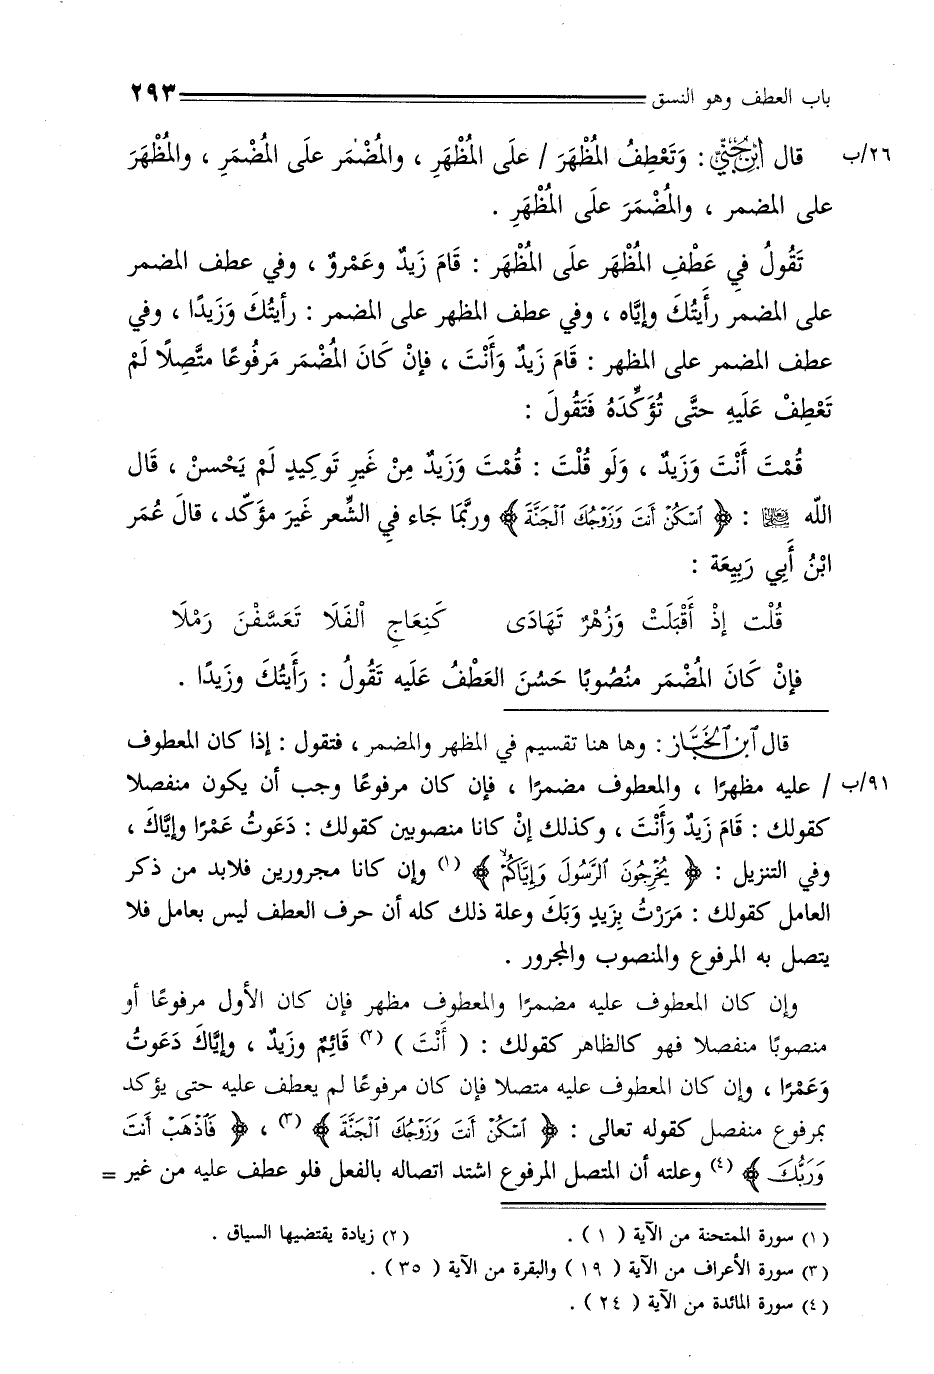 باب العطف وهو النسق ٢٩٣
٢٦/ب قال ابن جني : وَتَعْطِفُ المُظْهَرَ / علَى المُظْهَرِ ، والمُضْمَر علَى المُضْمَرِ ، والمُظْهَرَ
على المضمر ، والمُضْمَرَ علَى المُظْهَرِ .
تَقُولُ في عَطْفِ المُظْهَر علَى المُظْهَر : قَامَ زَيدٌ وعَمْروٌ ، وفي عطف المضمر
على المضمر رأَيتُكَ وإيَّاه ، وفي عطف المظهر على المضمر : رأيتُكَ وَزَيدًا ، وفي
عطف المضمر على المظهر : قَامَ زَيدٌ وَأَنْتَ ، فإنْ كَانَ المُضْمَر مَرفُوعًا متَّصِلًا لَمْ
تَعْطِفْ عَلَيهِ حتَّى تُؤَكِّدَهُ فَتَقُولَ :
قُمْتَ أَنْتَ وَزَيدٌ ، وَلَو قُلْتَ : قُمْتَ وَزَيدٌ مِنْ غَيرِ تَوكِيدٍ لَمْ يَحْسنْ ، قَال
اللّه تعالى : ﴿ ٱسْكُنْ أَنتَ وَزَوْجُكَ ٱلْجَنَّةَ ﴾ وربَّمَا جَاءَ فِي الشِّعر غَيرَ مؤَكّد ، قالَ عُمَر
ابْنُ أَبِي رَبِيعَة :
قُلْت إذْ أَقْبَلَتْ وَزُهْرٌ تَهَادَى كَنِعَاجِ ٱلْفَلَا تَعَسَّفْنَ رَمْلَا
فإنْ كَانَ المُضْمَر منْصُوبًا حَسُنَ العَطْفُ عَلَيه تَقُولُ : رَأَيتُكَ وزَيدًا .
قال ابن الخباز : وها هنا تقسيم في المظهر والمضمر ، فتقول : إذا كان المعطوف
٩١/ب / عليه مظهرًا ، والمعطوف مضمرًا ، فإن كان مرفوعًا وجب أن يكون منفصلا
كقولك : قَامَ زَيدٌ وَأَنْتَ ، وكذلك إنْ كانا منصوبين كقولك : دَعَوتُ عَمْرًا وإيَّاكَ ،
وفي التنزيل : ﴿ يُخْرِجُونَ ٱلرَّسُولَ وَإِيَّاكُمْ ﴾ (١) وإن كانا مجرورين فلابد من ذكر
العامل كقولك : مَرَرْتُ بِزَيدٍ وَبَكَ وعلة ذلك كله أن حرف العطف ليس بعامل فلا
يتصل به المرفوع والمنصوب والمجرور .
وإن كان المعطوف عليه مضمرًا والمعطوف مظهر فإن كان الأول مرفوعًا أو
منصوبًا منفصلا فهو كالظاهر كقولك : ( أَنْتَ ) (٢) قَائِمٌ وزَيدٌ ، وإيَّاكَ دَعَوتُ
وَعَمْرًا ، وإن كان المعطوف عليه متصلا فإن كان مرفوعًا لم يعطف عليه حتى يؤكد
بمرفوع منفصل كقوله تعالى : ﴿ ٱسْكُنْ أَنتَ وَزَوْجُكَ ٱلْجَنَّةَ ﴾ (٣) ، ﴿ فَٱذْهَبْ أَنتَ
وَرَبُّكَ ﴾ (٤) وعلته أن المتصل المرفوع اشتد اتصاله بالفعل فلو عطف عليه من غير =
(١) سورة الممتحنة من الآية ( ١ ) . (٢) زيادة يقتضيها السياق .
(٣) سورة الأعراف من الآية ( ١٩ ) والبقرة من الآية ( ٣٥ ) .
(٤) سورة المائدة من الآية ( ٢٤ ) .